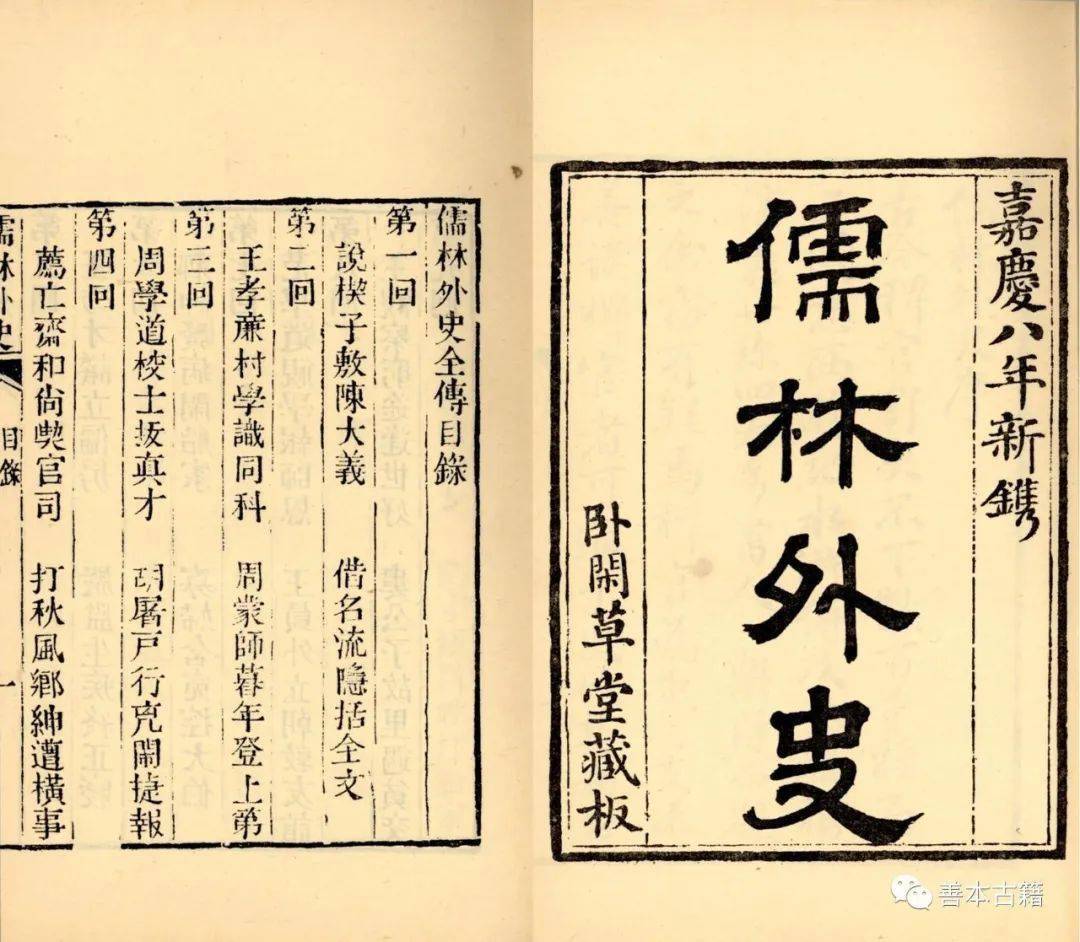 嘉慶八年新鐫
儒林外史
臥閑草堂藏板
儒林外史全傳目錄
第一回
說楔子敷陳大義　借名流隱括全文
第二回
王孝廉村學識同科　周蒙師暮年登上第
第三回
周學道校士拔真才　胡屠戶行兇鬧捷報
第四回
薦亡齋和尚喫官司　打秋風鄉紳遭橫事
儒林外史　目錄　一
善本古籍